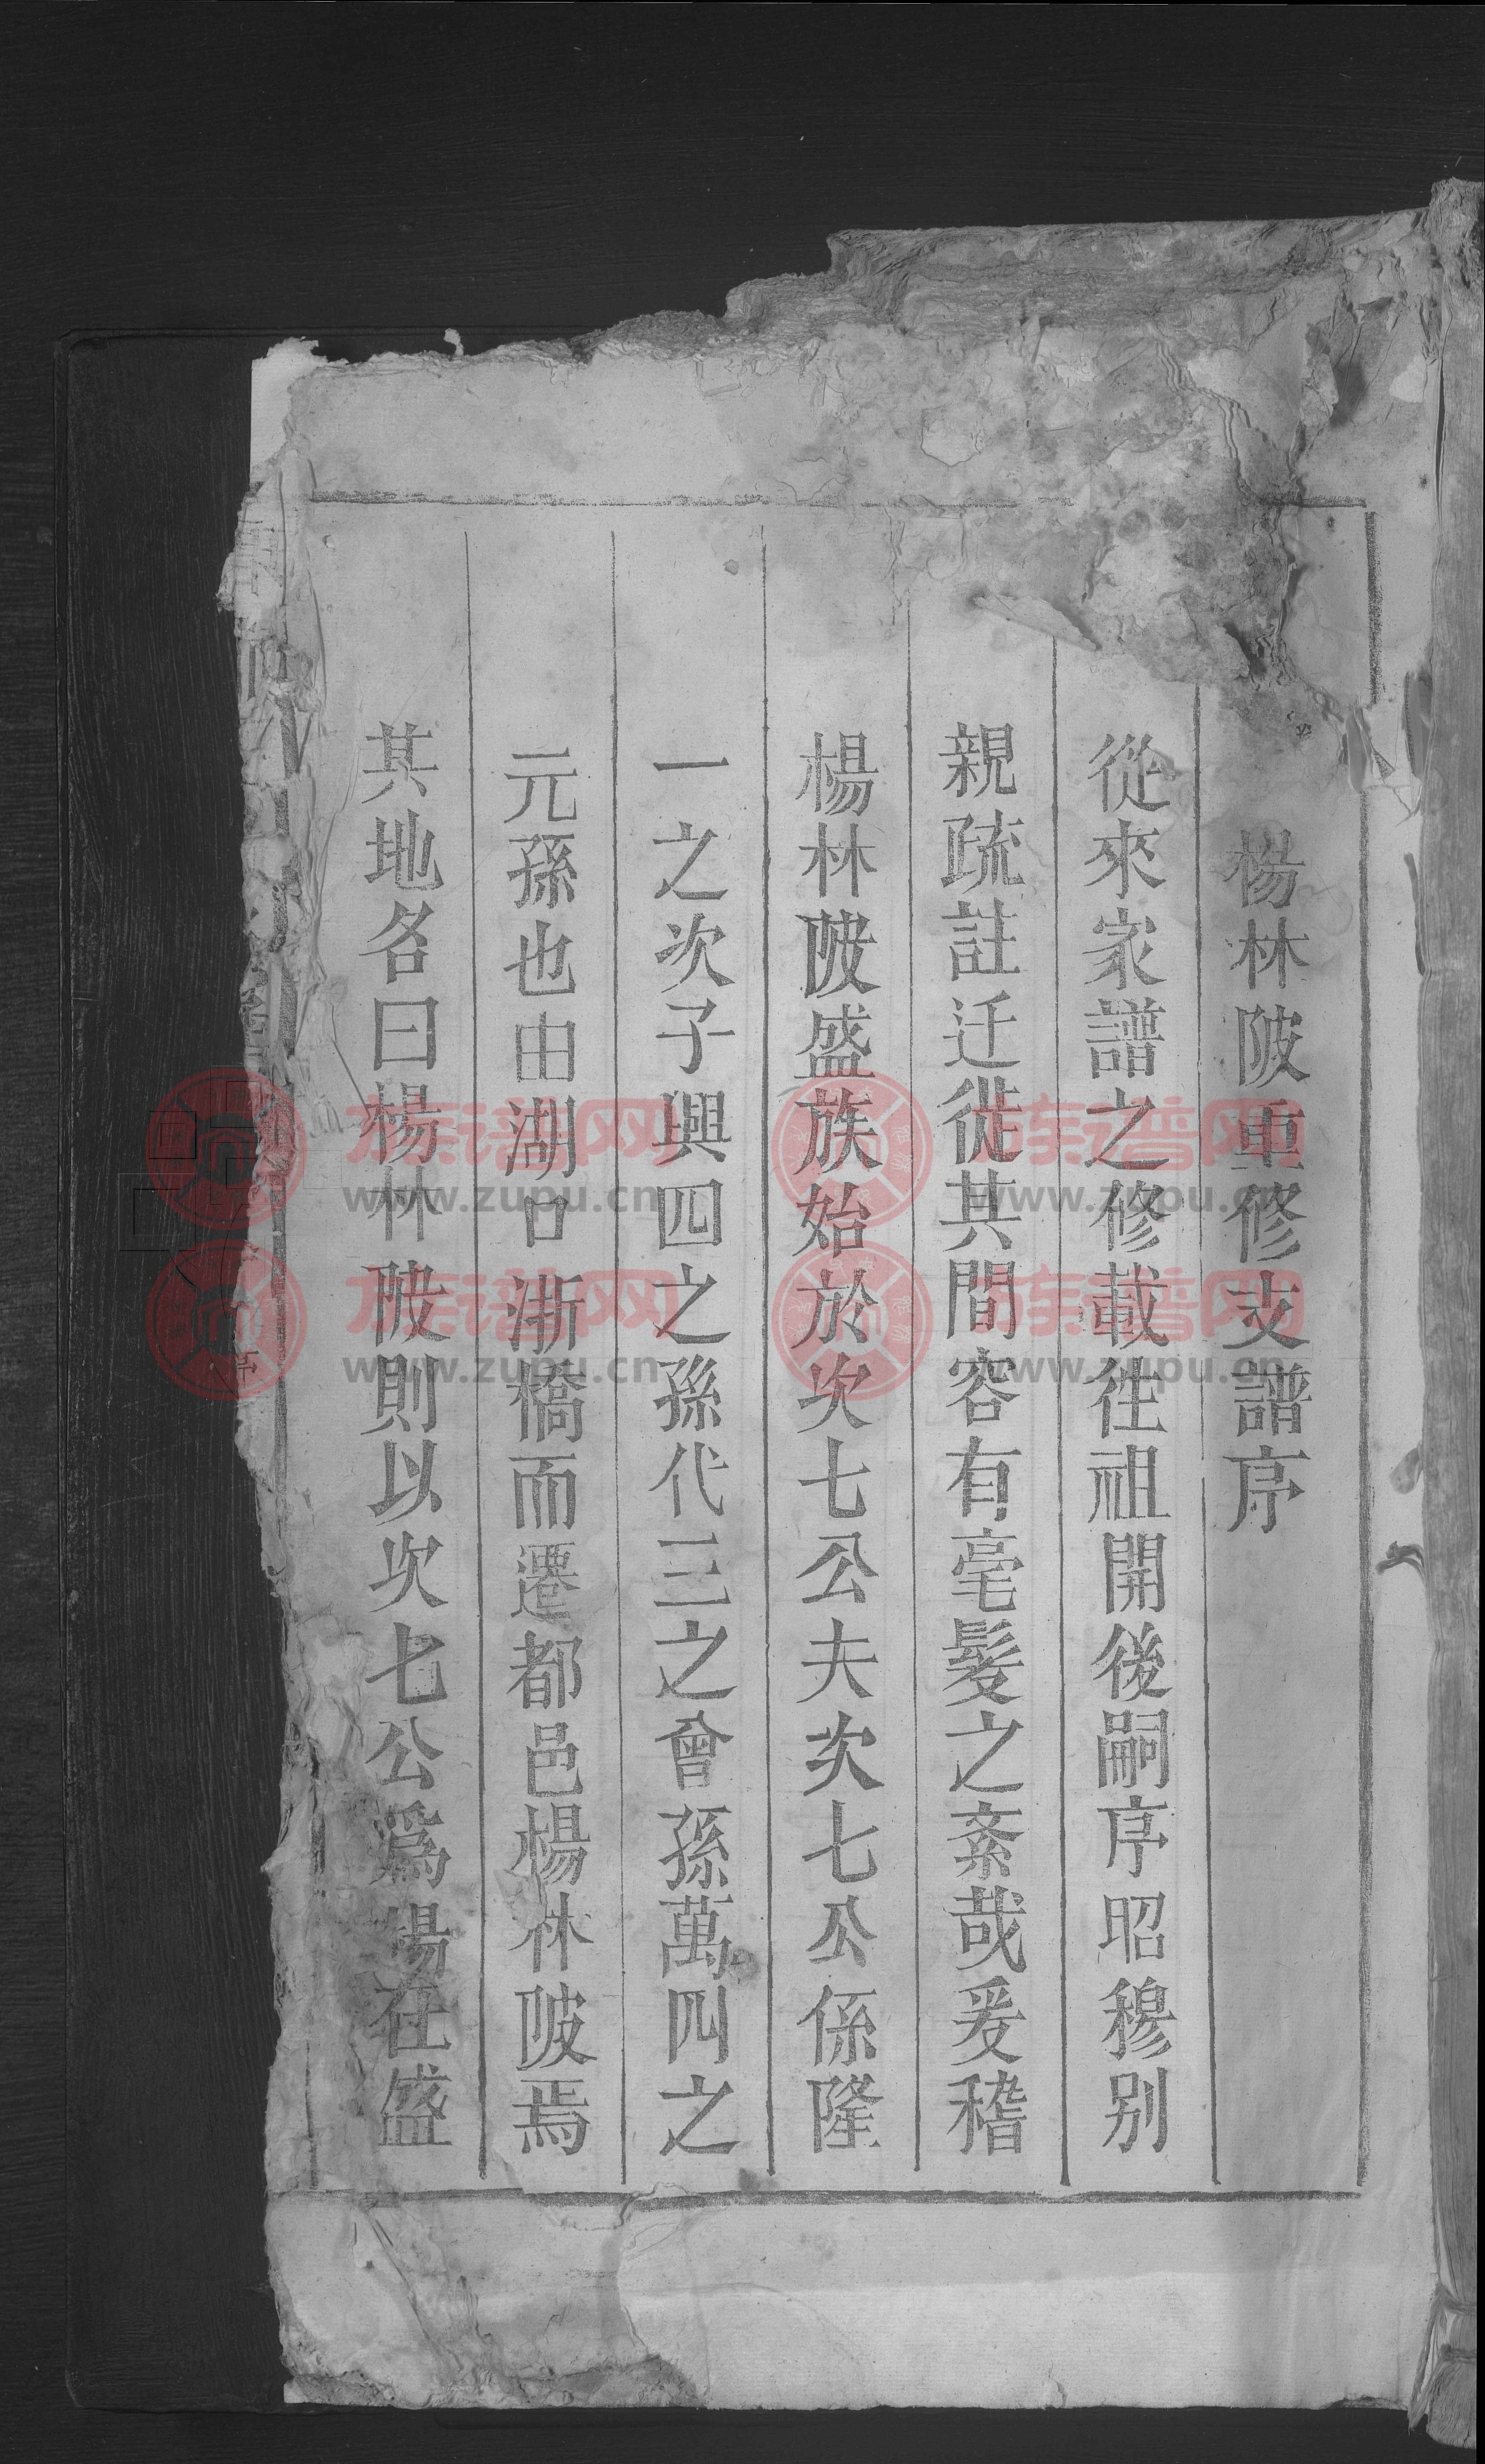 楊林陂重修支譜序
從來家譜之修載徃祖開後嗣序昭穆别
親疏註迁徙其間容有毫髮之紊哉爰稽
楊林陂盛族始於次七公夫次七公係隆
一之次子興四之孫代三之曾孫萬四之
元孫也由湖口漸橋而遷都邑楊林陂焉
其地名曰楊林陂則以次七公爲楊在盛
族谱网
www.zupu.cn
族谱网
www.zupu.cn
族谱网
www.zupu.cn
族谱网
www.zupu.cn